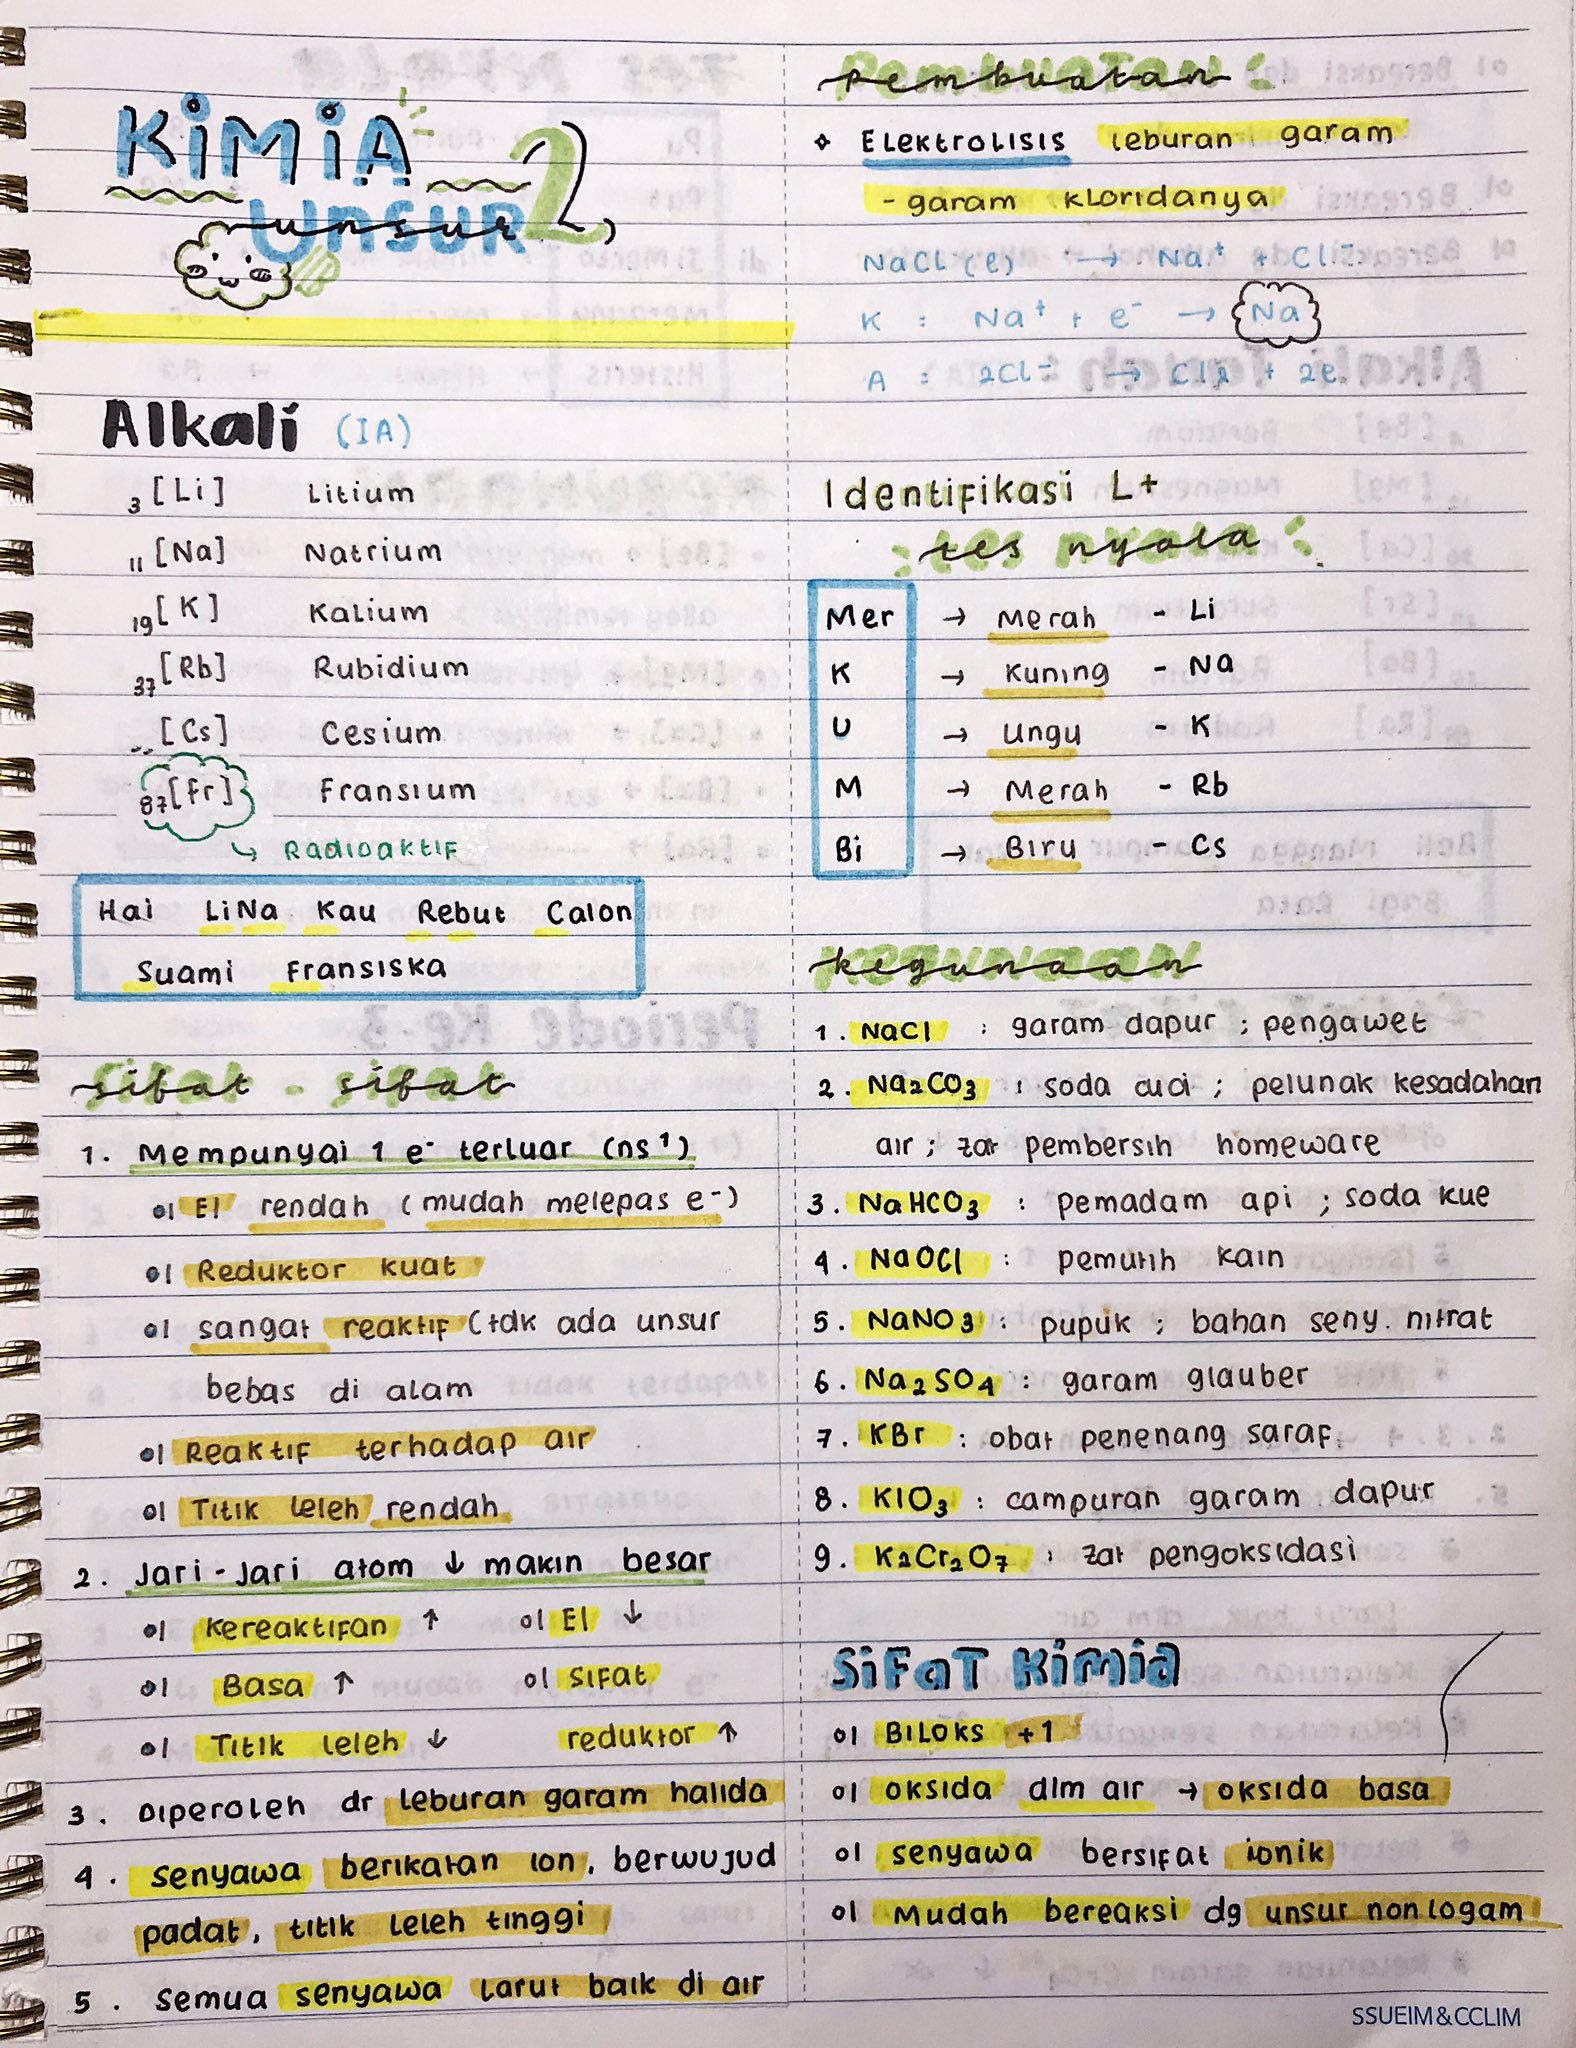 KIMIA
Unsur 2
Alkali (IA)
3 [Li] Litium
11 [Na] Natrium
19 [K] Kalium
37 [Rb] Rubidium
[Cs] Cesium
87 [Fr] Fransium
↳ Radioaktif
Hai LiNa Kau Rebut Calon
Suami Fransiska
sifat - sifat
1. Mempunyai 1 e⁻ terluar (ns¹)
EI rendah (mudah melepas e⁻)
Reduktor kuat
sangat reaktif (tdk ada unsur
bebas di alam
Reaktif terhadap air
Titik leleh rendah
2. Jari-Jari atom ↓ makin besar
Kereaktifan ↑ EI ↓
Basa ↑ Sifat
Titik leleh ↓ reduktor ↑
3. Diperoleh dr leburan garam halida
4. senyawa berikatan ion, berwujud
padat, titik leleh tinggi
5. semua senyawa larut baik di air
Pembuatan :
Elektrolisis leburan garam
- garam kloridanya
NaCl (l) → Na⁺ + Cl⁻
K : Na⁺ + e⁻ → Na
A : 2Cl⁻ → Cl2 + 2e
Identifikasi L+
: tes nyala :
Mer → Merah - Li
K → Kuning - Na
U → Ungu - K
M → Merah - Rb
Bi → Biru - Cs
kegunaan
1. NaCl : garam dapur ; pengawet
2. Na2CO3 : soda cuci ; pelunak kesadahan
air ; zat pembersih homeware
3. NaHCO3 : pemadam api ; soda kue
4. NaOCl : pemutih kain
5. NaNO3 : pupuk ; bahan seny. nitrat
6. Na2SO4 : garam glauber
7. KBr : obat penenang saraf
8. KIO3 : campuran garam dapur
9. K2Cr2O7 : zat pengoksidasi
Sifat Kimia
Biloks +1
oksida dlm air → oksida basa
senyawa bersifat ionik
Mudah bereaksi dg unsur nonlogam
SSUEIM&CCLIM